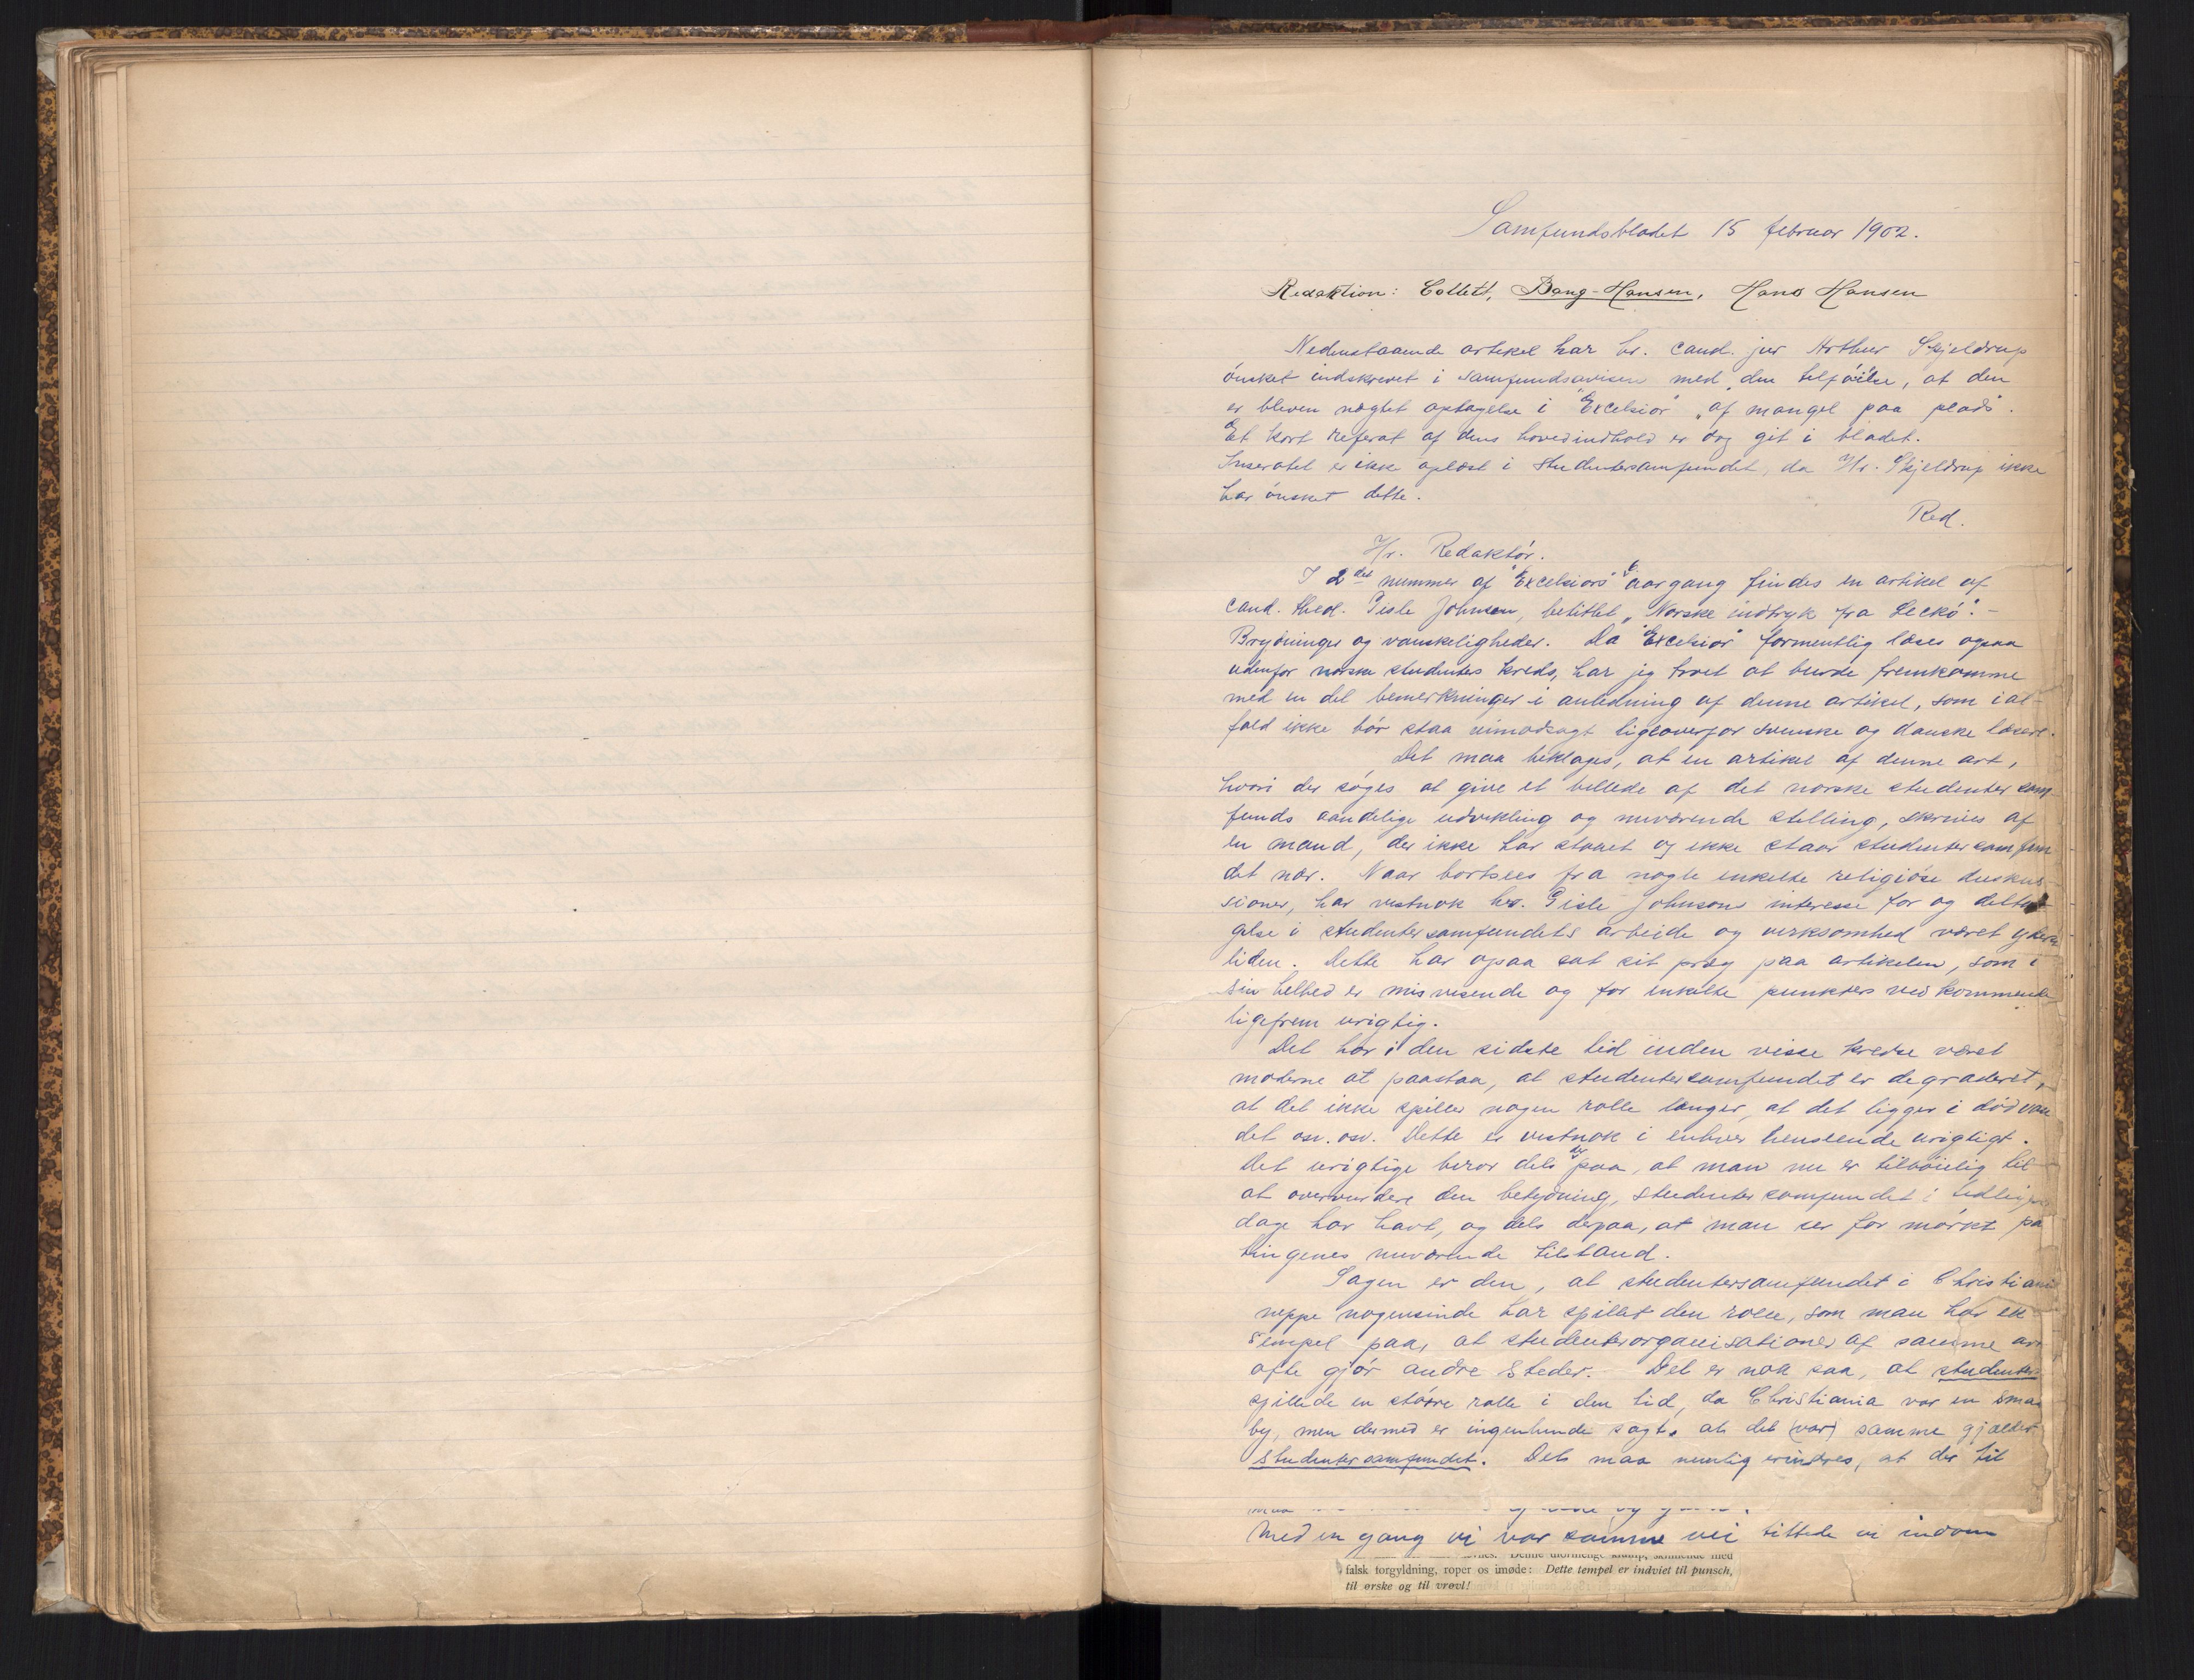 Samfundsbladet 15 februar 1902.
Redaktion: Collett, Bang-Hansen, Hans Hansen
Nedenstaaende artikel har hr. cand. jur Arthur Skjeldrup
ønsket indskrevet i samfundsavisen med den tilføielse, at den
er bleven nægtet optagelse i "Excelsior" "af mangel paa plads".
Et kort referat af dens hovedindhold er dog git i bladet.
Inseratet er ikke oplæst i Studentersamfundet, da Hr. Skjeldrup ikke
har ønsket dette.
Red.
Hr. Redaktør.
I 2det nummer af "Excelsiors" aargang findes en artikel af
cand. theol. Gisle Johnson, betitlet "Norske indtryk fra Leckö". –
Brydninger og vanskeligheder. Da "Excelsior" formentlig læses ogsaa
udenfor norske studenters kreds, har jeg troet at burde fremkomme
med en del bemerkninger i anledning af denne artikel, som ial-
fald ikke bør staa uimodsagt ligeoverfor svenske og danske læsere.
Det maa beklages, at en artikel af denne art,
hvori der søges at give et billede af det norske studentersam-
funds aandelige udvikling og nuværende stilling, skrives af
en mand, der ikke har staaet og ikke staar studentersamfun
det nær. Naar bortsees fra nogle enkelte religiøse diskus-
sioner, har vistnok hr. Gisle Johnsons interesse for og delta-
gelse i studentersamfundets arbeide og virksomhed været
liden. Dette har ogsaa sat sit præg paa artikelen, som i
sin helhed er misvisende og for enkelte punkters vedkommende
ligefrem urigtig.
Det har i den sidste tid inden visse kredse været
moderne at paastaa, at studentersamfundet er degraderet,
at det ikke spiller nogen rolle længer, at det ligger i dødvan
det osv. osv. Dette er vistnok i enhver henseende urigtigt.
Det urigtige beror dels paa, at man nu er tilbøielig til
at overvurdere den betydning, studentersamfundet i tidligere
dage har havt, og dels derpaa, at man ser for mørkt pa
tingenes nuværende tilstand.
Sagen er den, at studentersamfundet i Christiania
neppe nogensinde har spillet den rolle, som man har ek-
sempel paa, at studenterorganisationer af samme art
ofte gjør andre steder. Det er nok saa, at studenter
spillede en større rolle i den tid, da Christiania var en smaa
by, men dermed er ingenlunde sagt, at det (var) samme gjælder
studentersamfundet. Det maa nemlig erindres, at der til
Med en gang vi var samme vei tittede vi indom
falsk forgyldning, roper os imøde: Dette tempel er indviet til punsch,
til ørske og til vrøvl!